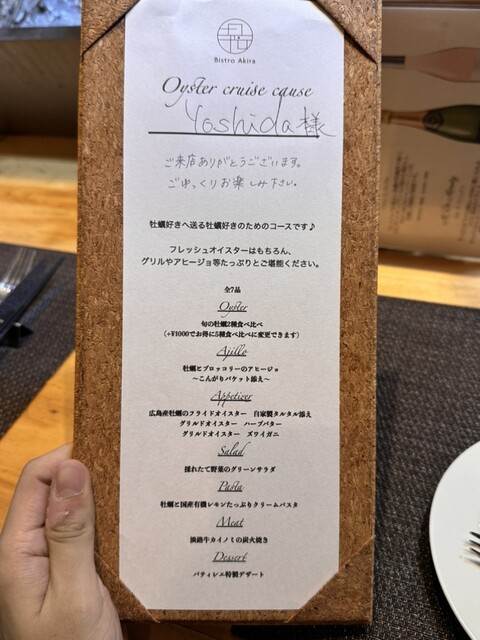 Bistro Akira
Oyster cruise cause
Yoshida様
ご来店ありがとうございます。
ごゆっくりお楽しみ下さい。
牡蠣好きへ送る牡蠣好きのためのコースです♪
フレッシュオイスターはもちろん、
グリルやアヒージョ等たっぷりとご堪能ください。
全7品
Oyster
旬の牡蠣2種食べ比べ
（+¥1000でお得に5種食べ比べに変更できます）
Ajillo
牡蠣とブロッコリーのアヒージョ
〜こんがりバケット添え〜
Appetizer
広島産牡蠣のフライドオイスター　自家製タルタル添え
グリルドオイスター　ハーブバター
グリルドオイスター　ズワイガニ
Salad
採れたて野菜のグリーンサラダ
Pasta
牡蠣と国産有機レモンたっぷりクリームパスタ
Meat
淡路牛カイノミの炭火焼き
Dessert
パティシエ特製デザート